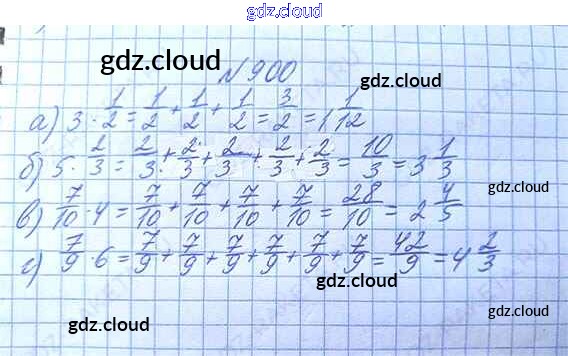 gdz.cloud
gdz.cloud
gdz.cloud
№900
а) 3 · 1/2 = 1/2 + 1/2 + 1/2 = 3/2 = 1 1/12
gdz.cloud
б) 5 · 2/3 = 2/3 + 2/3 + 2/3 + 2/3 + 2/3 = 10/3 = 3 1/3
в) 7/10 · 4 = 7/10 + 7/10 + 7/10 + 7/10 = 28/10 = 2 4/5
г) 7/9 · 6 = 7/9 + 7/9 + 7/9 + 7/9 + 7/9 + 7/9 = 42/9 = 4 2/3
gdz.cloud
gdz.cloud
gdz.cloud